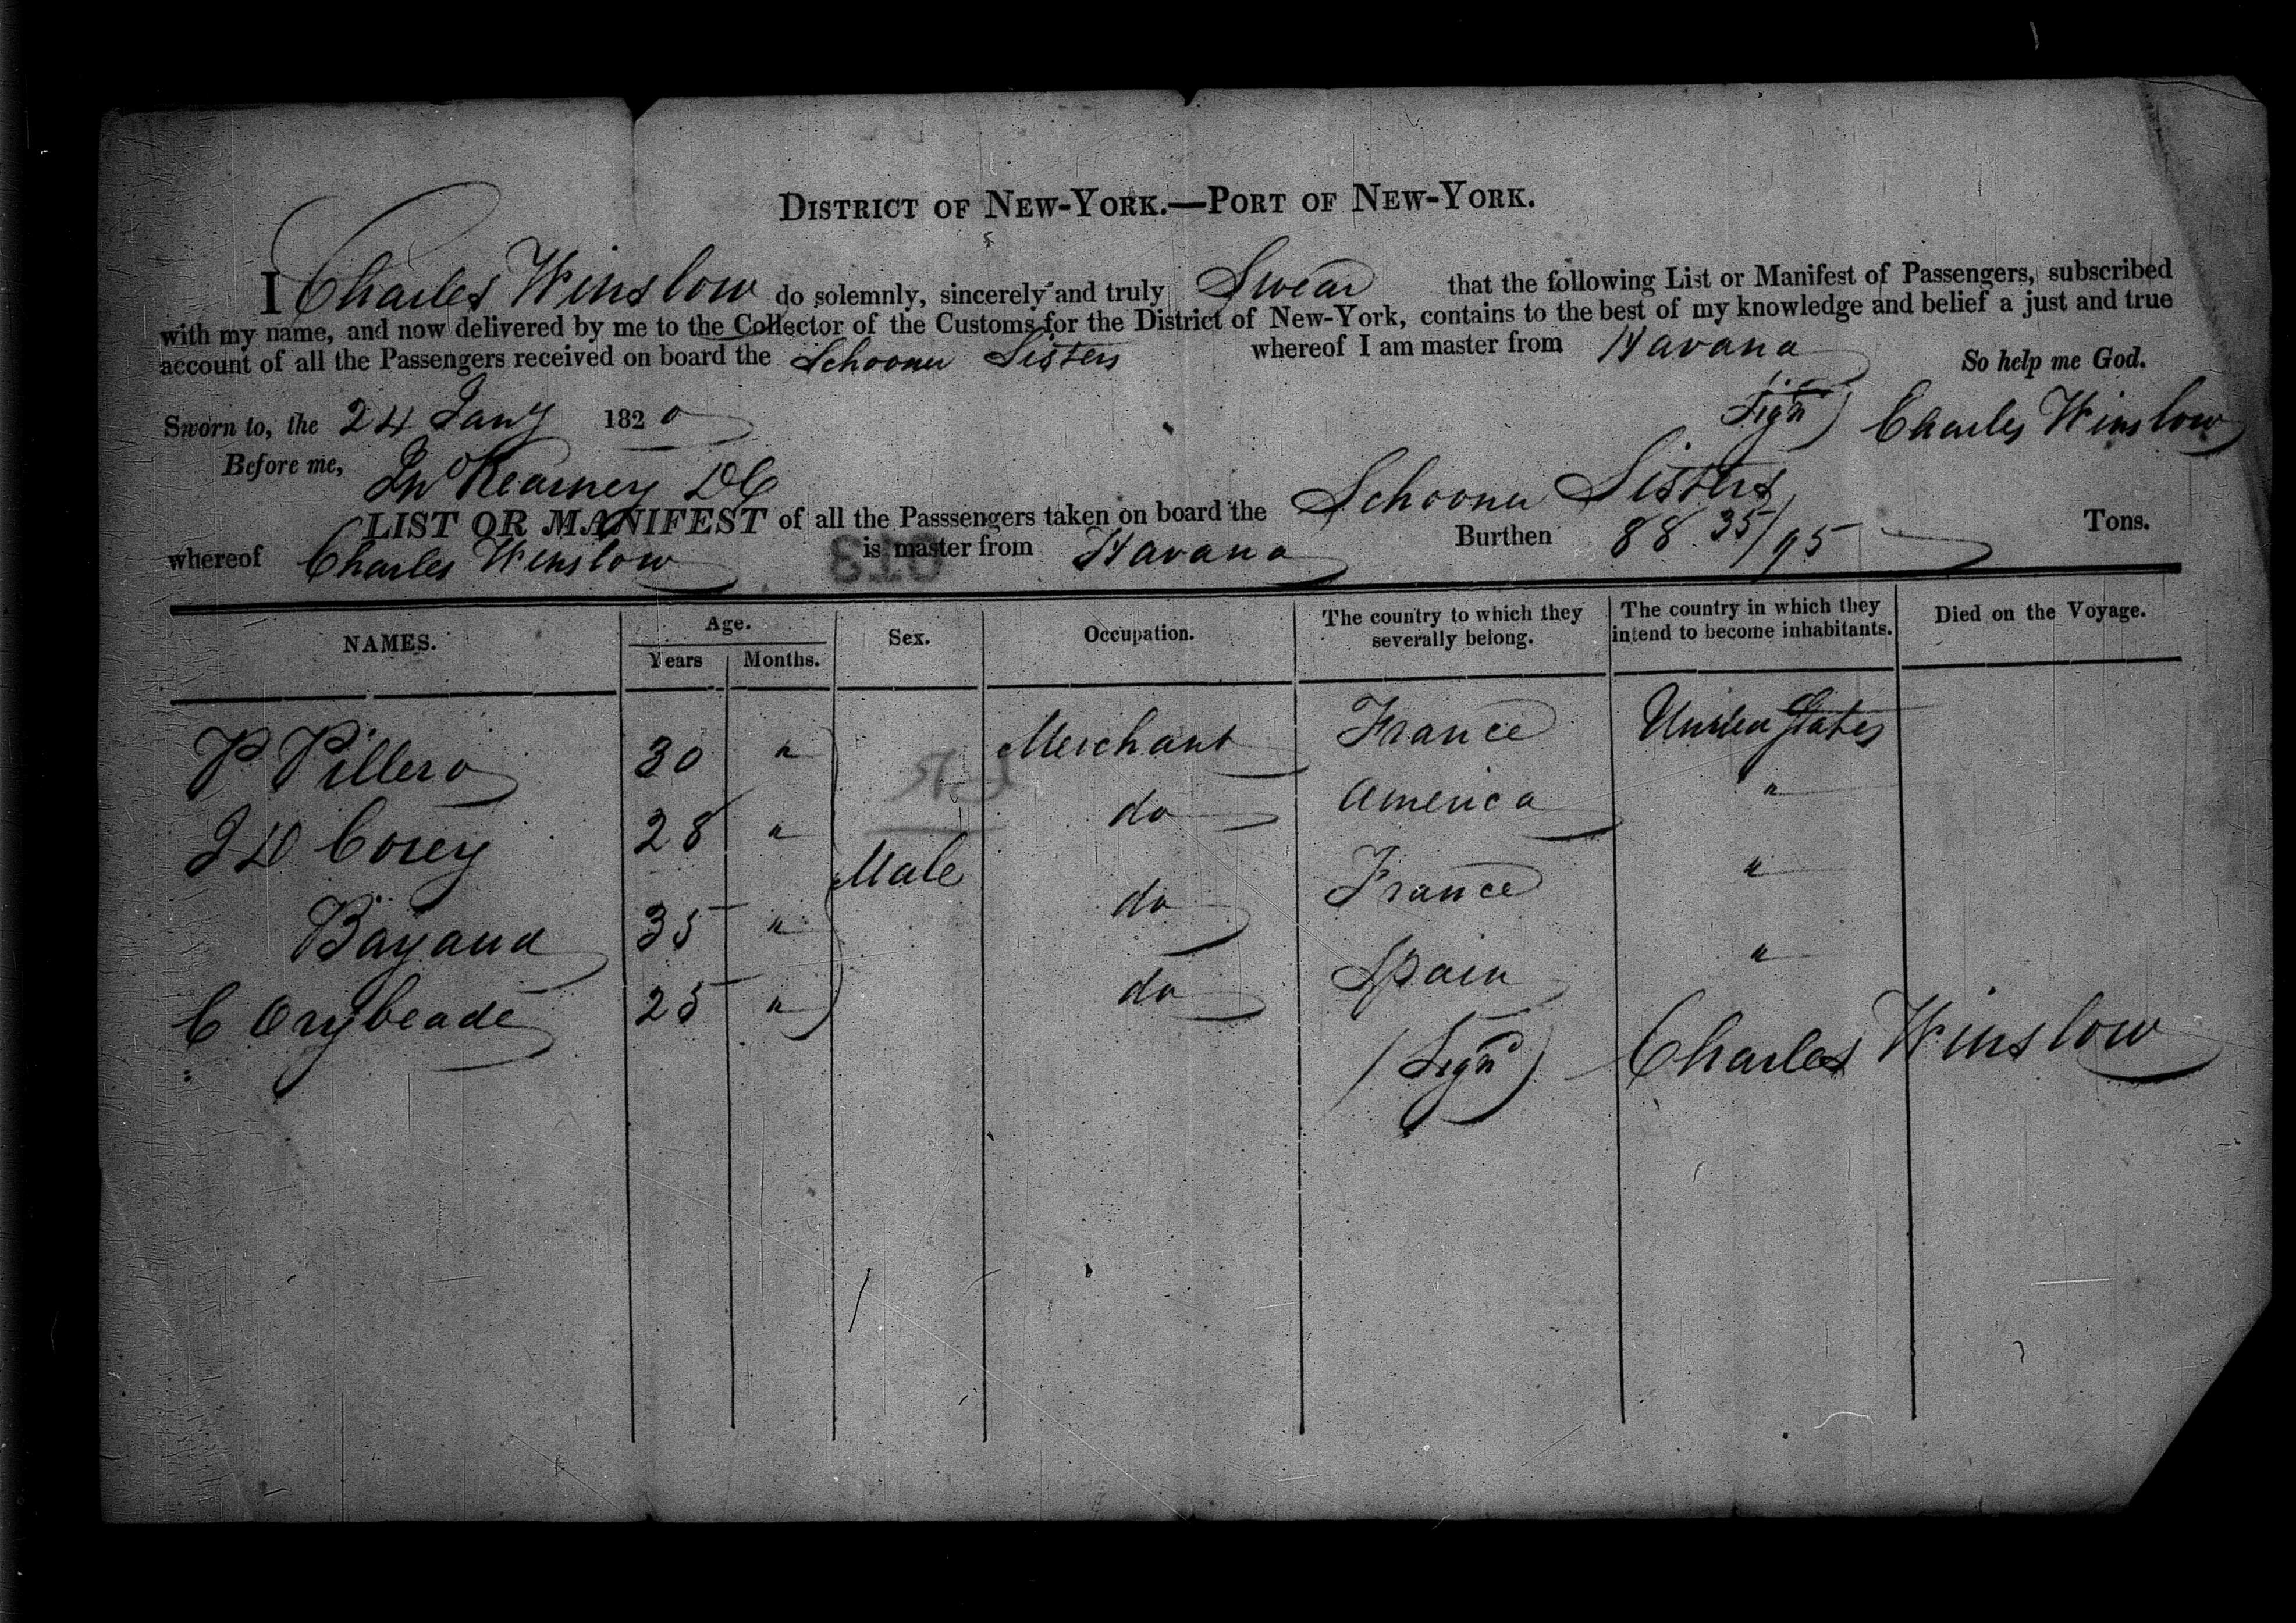 DISTRICT OF NEW-YORK.—PORT OF NEW-YORK.
I Charles Winslow do solemnly, sincerely and truly Swear that the following List or Manifest of Passengers, subscribed
with my name, and now delivered by me to the Collector of the Customs for the District of New-York, contains to the best of my knowledge and belief a just and true
account of all the Passengers received on board the Schooner Sisters whereof I am master from Havana So help me God.
Sworn to, the 24 Jany 1820 Signd) Charles Winslow
Before me, Jno Kearney DC
LIST OR MANIFEST of all the Passsengers taken on board the Schooner Sisters
whereof Charles Winslow is master from Havana Burthen 88.35/95 Tons.
NAMES. Age. Years Months. Sex. Occupation. The country to which they severally belong. The country in which they intend to become inhabitants. Died on the Voyage.
P Pillero 30 " Merchant France United States
J D Corey 28 " do America "
Bayaud 35 " Male do France "
C Orybeade 25 " do Spain "
(Signd) Charles Winslow